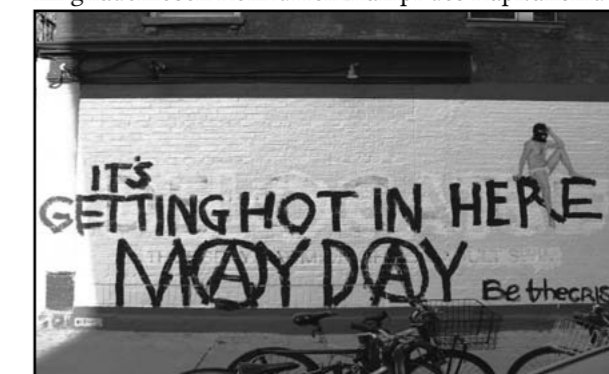 IT'S
GETTING HOT IN HERE
MAYDAY
Be the CRIS